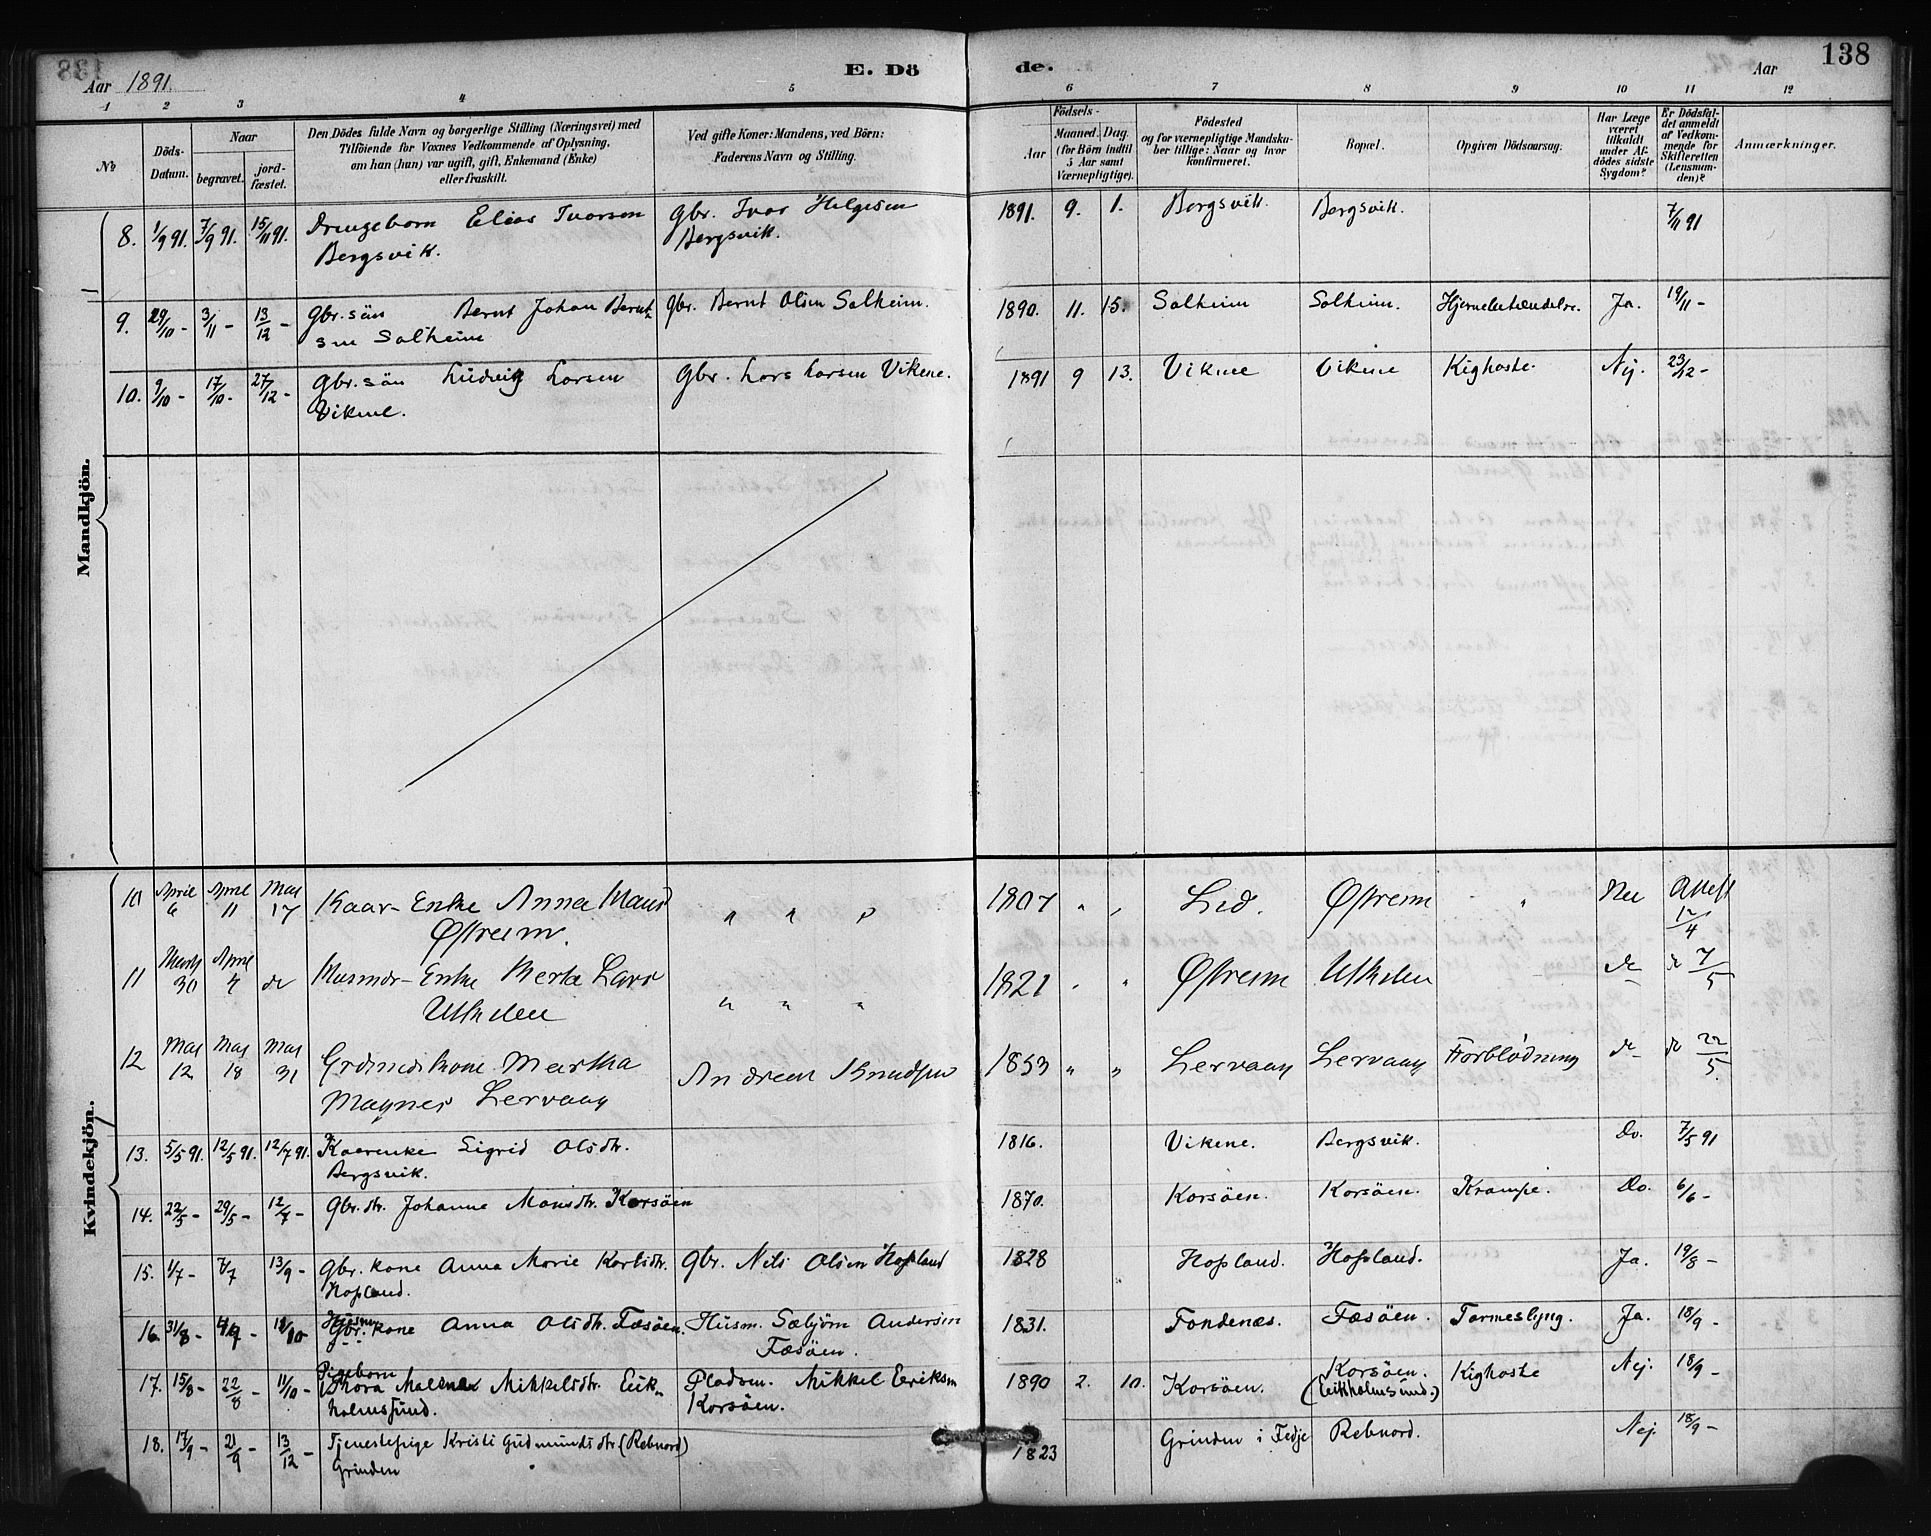 138
Aar 1891.
E. Dö de.
Aar
1 2 3 4 5 6 7 8 9 10 11 12
No
Döds-Datum.
Naar
begravet.
jord-fæstet.
Den Dödes fulde Navn og borgerlige Stilling (Næringsvei) med
Tilföiende for Voxnes Vedkommende af Oplysning,
om han (hun) var ugift, gift, Enkemand (Enke)
eller fraskilt.
Ved gifte Koner: Mandens, ved Börn:
Faderens Navn og Stilling.
Födsels-
Aar
Maaned. Dag.
(for Börn indtil
5 Aar samt
Værnepligtige).
Födested
og for værnepligtige Mandska-
ber tillige: Naar og hvor
konfirmeret.
Bopæl.
Opgiven Dödsaarsag.
Har Læge
været
tilkaldt
under Af-
dödes sidste
Sygdom?
Er Dödsfal-
det anmeldt
af Vedkom-
mende for
Skifteretten
(Lensman-
den)?
Anmærkninger.
Mandkjön.
8. 1/9 91. 7/9 91. 15/11 91. Drengebarn Elias Ivarsen Gbr. Ivar Helgesen 1891. 9. 1. Bergsvik. Bergsvik. 7/11 91
Bergsvik. Bergsvik.
9. 29/10 - 3/11 - 13/12 - Gbr. sön Bernt Johan Bernt- Gbr. Bernt Olsen Solheim. 1890. 11. 15. Solheim Solheim. Hjernebetændelse. Ja. 19/11 -
sen Solheim
10. 9/10 - 17/10 - 27/12 - Gbr. sön Ludvig Larsen Gbr. Lars Larsen Vikene. 1891 9 13. Vikene Vikene Kighoste. Nej. 23/12 -
Vikene.
Kvindekjön.
10 April 6 April 11 Mai 17 Kaar-Enke Anna Mans " " " 1807 " " Lid. Østreim " Nei Attest 12/4
Østreim.
11 Marts 30 April do Husmdr-Enke Berta Lars 1821 " " Østreim do do 7/5
" " "
12 Mai 12 Mai 18 Mai 31 Grdmdskone Martha Andreas Knudsen 1853 " " Lervaag Lervaag Forblödning do do 22/5
Magnes Lervaag
13. 5/5 91. 12/5 91. 12/7 91. Kaarenke Sigrid Olsdtr. 1816. Vikene. Bergsvik. Do. 7/5 91
Bergsvik.
14. 22/5 - 29/5 - 12/7 - Gbr. dtr. Johanne Monsdtr. Korsöen 1870. Korsöen. Korsöen. Krampe. Do. 6/6 -
15. 1/7 - 7/7 13/9 - Gbr. kone Anna Marie Karlsdtr. Gbr. Nils Olsen Hopland 1828 Hopland. Hopland. Ja. 19/8 -
Hopland.
Husm.
16. 31/8 - 4/9 - 11/10 Gbr. kone Anna Olsdtr. Fæsöen. Husm. Sæbjörn Andersen 1831. Fondenæs. Fæsöen. Tarmeslyng. Ja. 18/9 -
Fæsöen.
Pigebarn
17. 15/8 - 22/8 - 11/10 - Thora Malena Mikkelsdtr. Eik- Pladsm. Mikkel Eriksen 1890 2. 10. Korsöen. Korsöen. Kighoste Nej. 18/9 -
holmsund. Korsöen. (Eikholmsund.)
18. 17/9 - 21/9 - 13/12 - Tjenestepige Kristi Gudmundsdtr (Rebnord) 1823 Grinden i Fedje Rebnord. Nej 18/9 -
Grinden